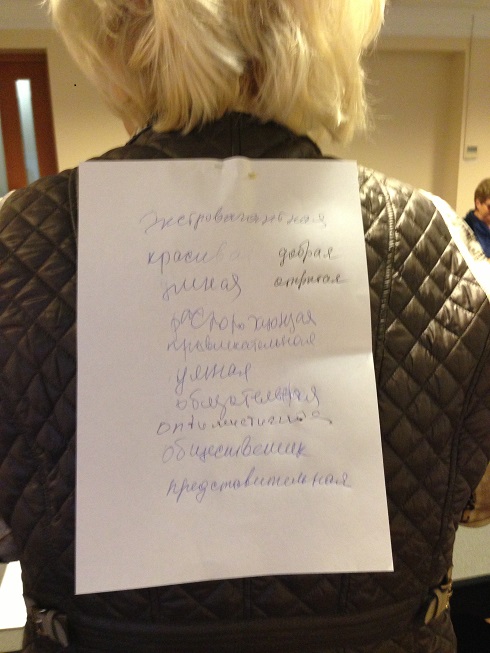 экстровагантная
красивая добрая
умная открытая
располагающая
привлекательная
умная
обязательная
оптимистичная
общественник
представительная